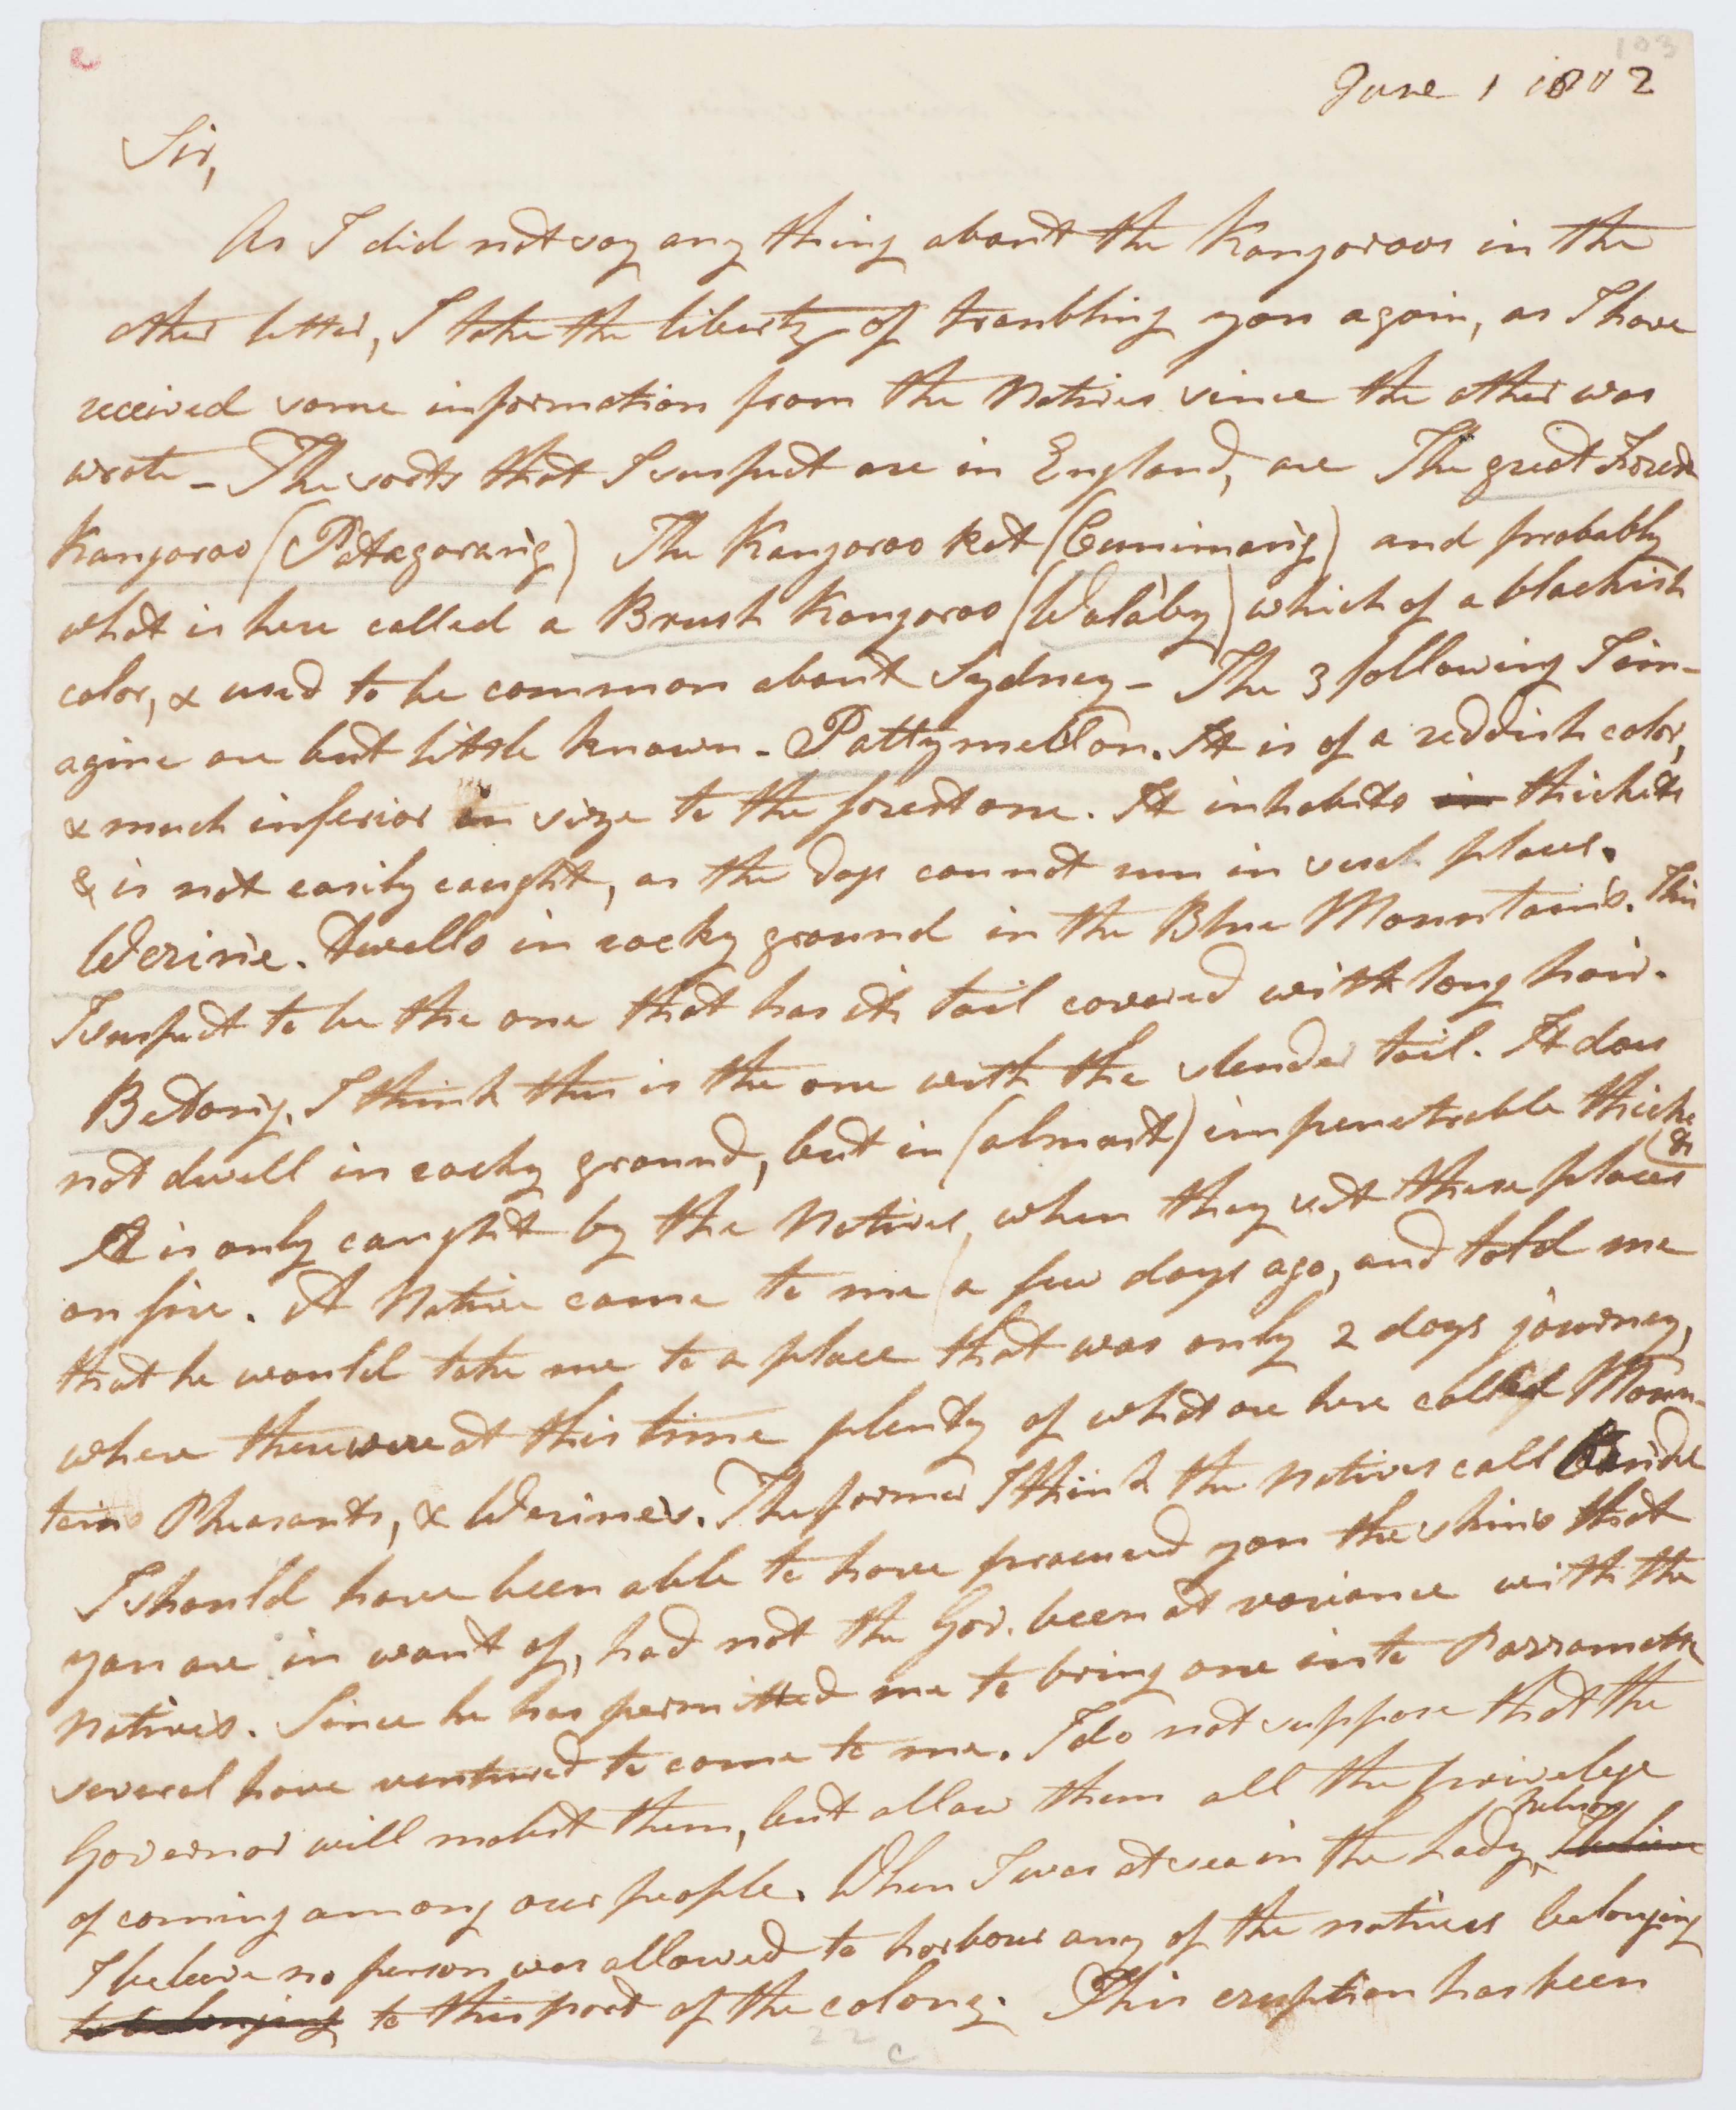 103
June 1 1802
Sir,
As I did not say any thing about the Kangoroos in the
other letter, I take the liberty of troubling you again, as I have
received some information from the Natives since the other was
wrote - The sorts that I suspect are in England, are The great Forest
Kangoroo (Patagorang) The Kangoroo Rat (Cunimang) and probably
what is here called a Brush Kangoroo (Walaby) which of a blackish
color, & used to be common about Sydney - The 3 following I im-
agine are but little known - Pattymellon. It is of a reddish color,
& much inferior in size to the forest one. It inhabits in thickets
& is not easily caught, as the dogs cannot run in such places.
Werine. Dwells in rocky ground in the Blue Mountains. This
I suspect to be the one that has its tail covered with long hair.
Betong. I think this is the one with the slender tail. It does
not dwell in rocky ground, but in (almost) impenetrable thicke
ts
It is only caught by the Natives, when they set these places
on fire. A Native came to me a few days ago, and told me
that he would take me to a place that was only 2 days journey,
where there were at this time plenty of what are here called Moun-
tain Pheasants, & Werines. The former I think the natives call
I should have been able to have procured you the skins that
you are in want of, had not the Gov. been at variance with the
natives. Since he has permitted me to bring one into Parramatta
several have ventured to come to me. I do not suppose that the
Governor will molest them, but allow them all the privelege
of coming among our people. When I was at sea in the Lady Nelson
I believe no person was allowed to harbour any of the natives belonging
to belonging to this part of the colony. This eruption has been
22
C